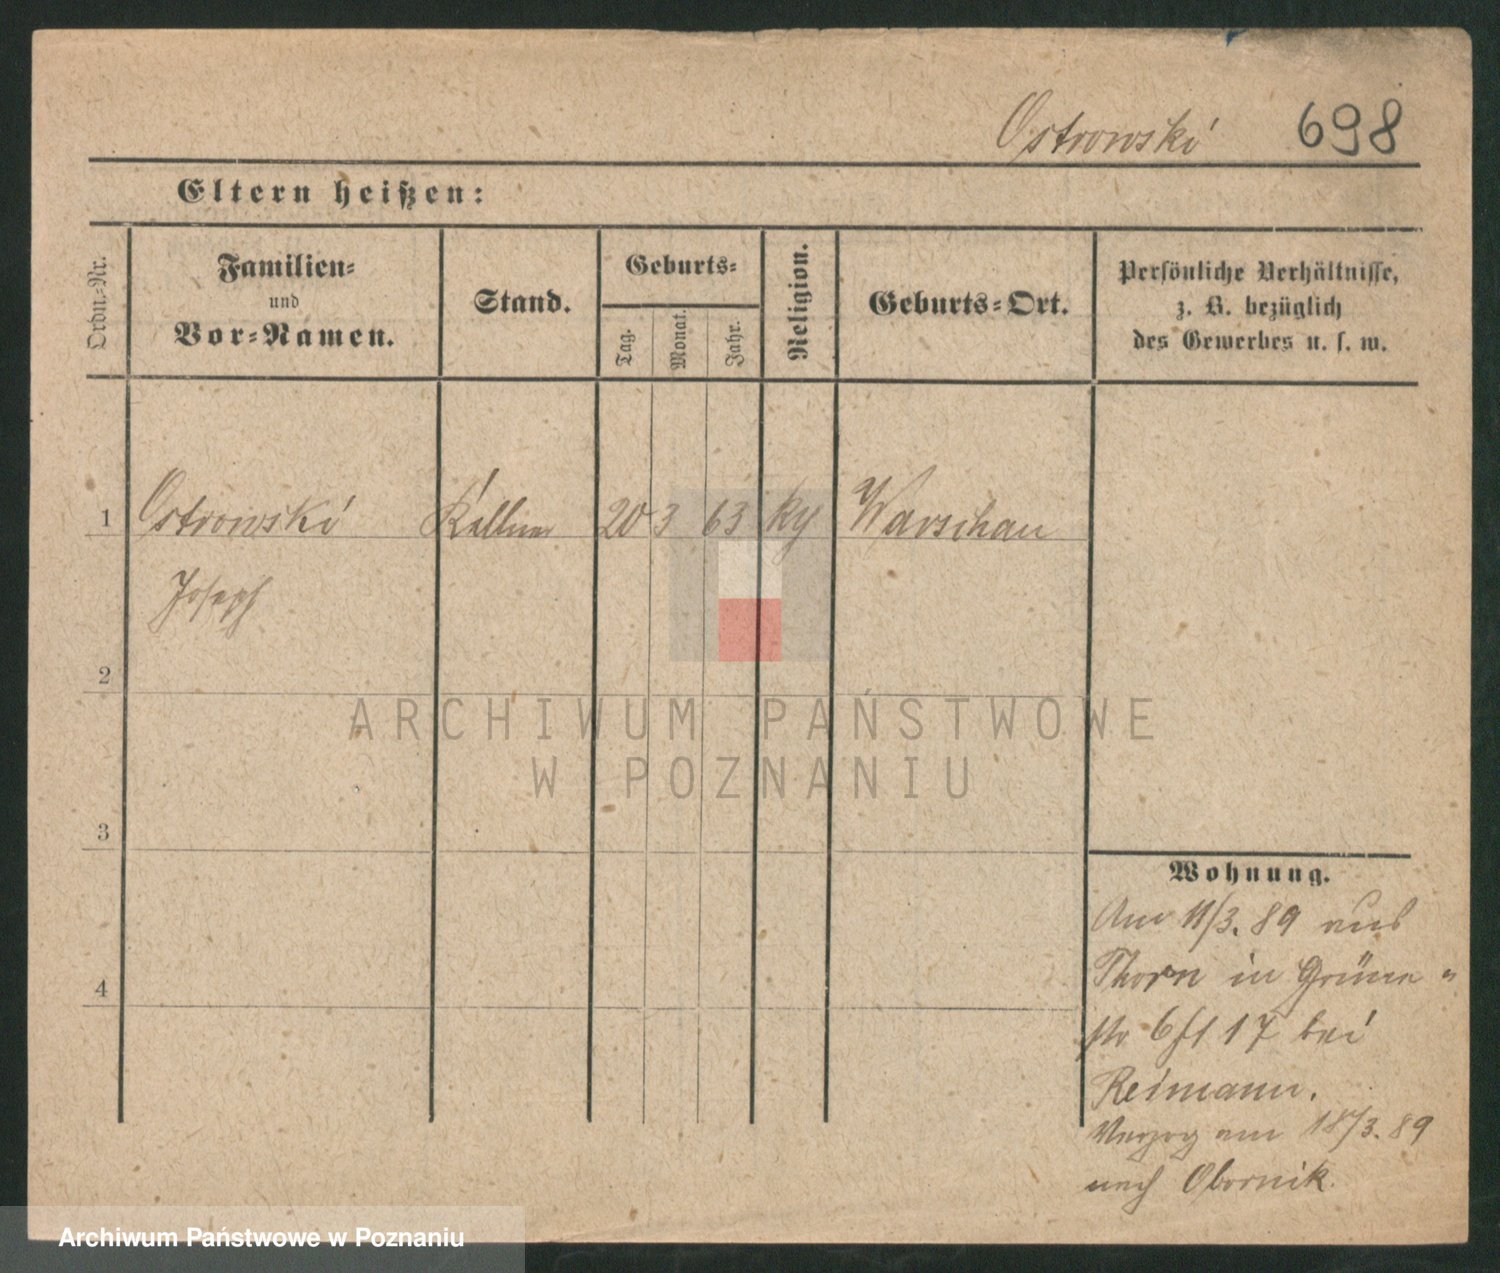 Ostrowski 698
Eltern heißen:
Ordn.-Nr.
Familien-
und
Vor-Namen.
Stand.
Geburts-
Tag.
Monat.
Jahr.
Religion.
Geburts-Ort.
Persönliche Verhältnisse,
z. B. bezüglich
des Gewerbes u. s. w.
1 Ostrowski Kellner 20 3 63 Warschau
Joseph
2
3
4
ARCHIWUM PAŃSTWOWE
W POZNANIU
Wohnung.
Am 11/3. 89 aus
Thorn in Grüne "
str 6 17 bei
Reimann.
Verzog am 18/3. 89
nach Obornik.
Archiwum Państwowe w Poznaniu